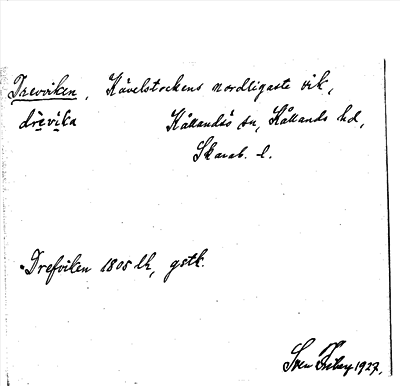 Drevviken, Kävelstockens nordligaste vik,
drèvìka Kållandsö sn, Kållands hd,
Skarab. l.
Drefviken 1805 lk, gstk.
Sven Fribey 1927.